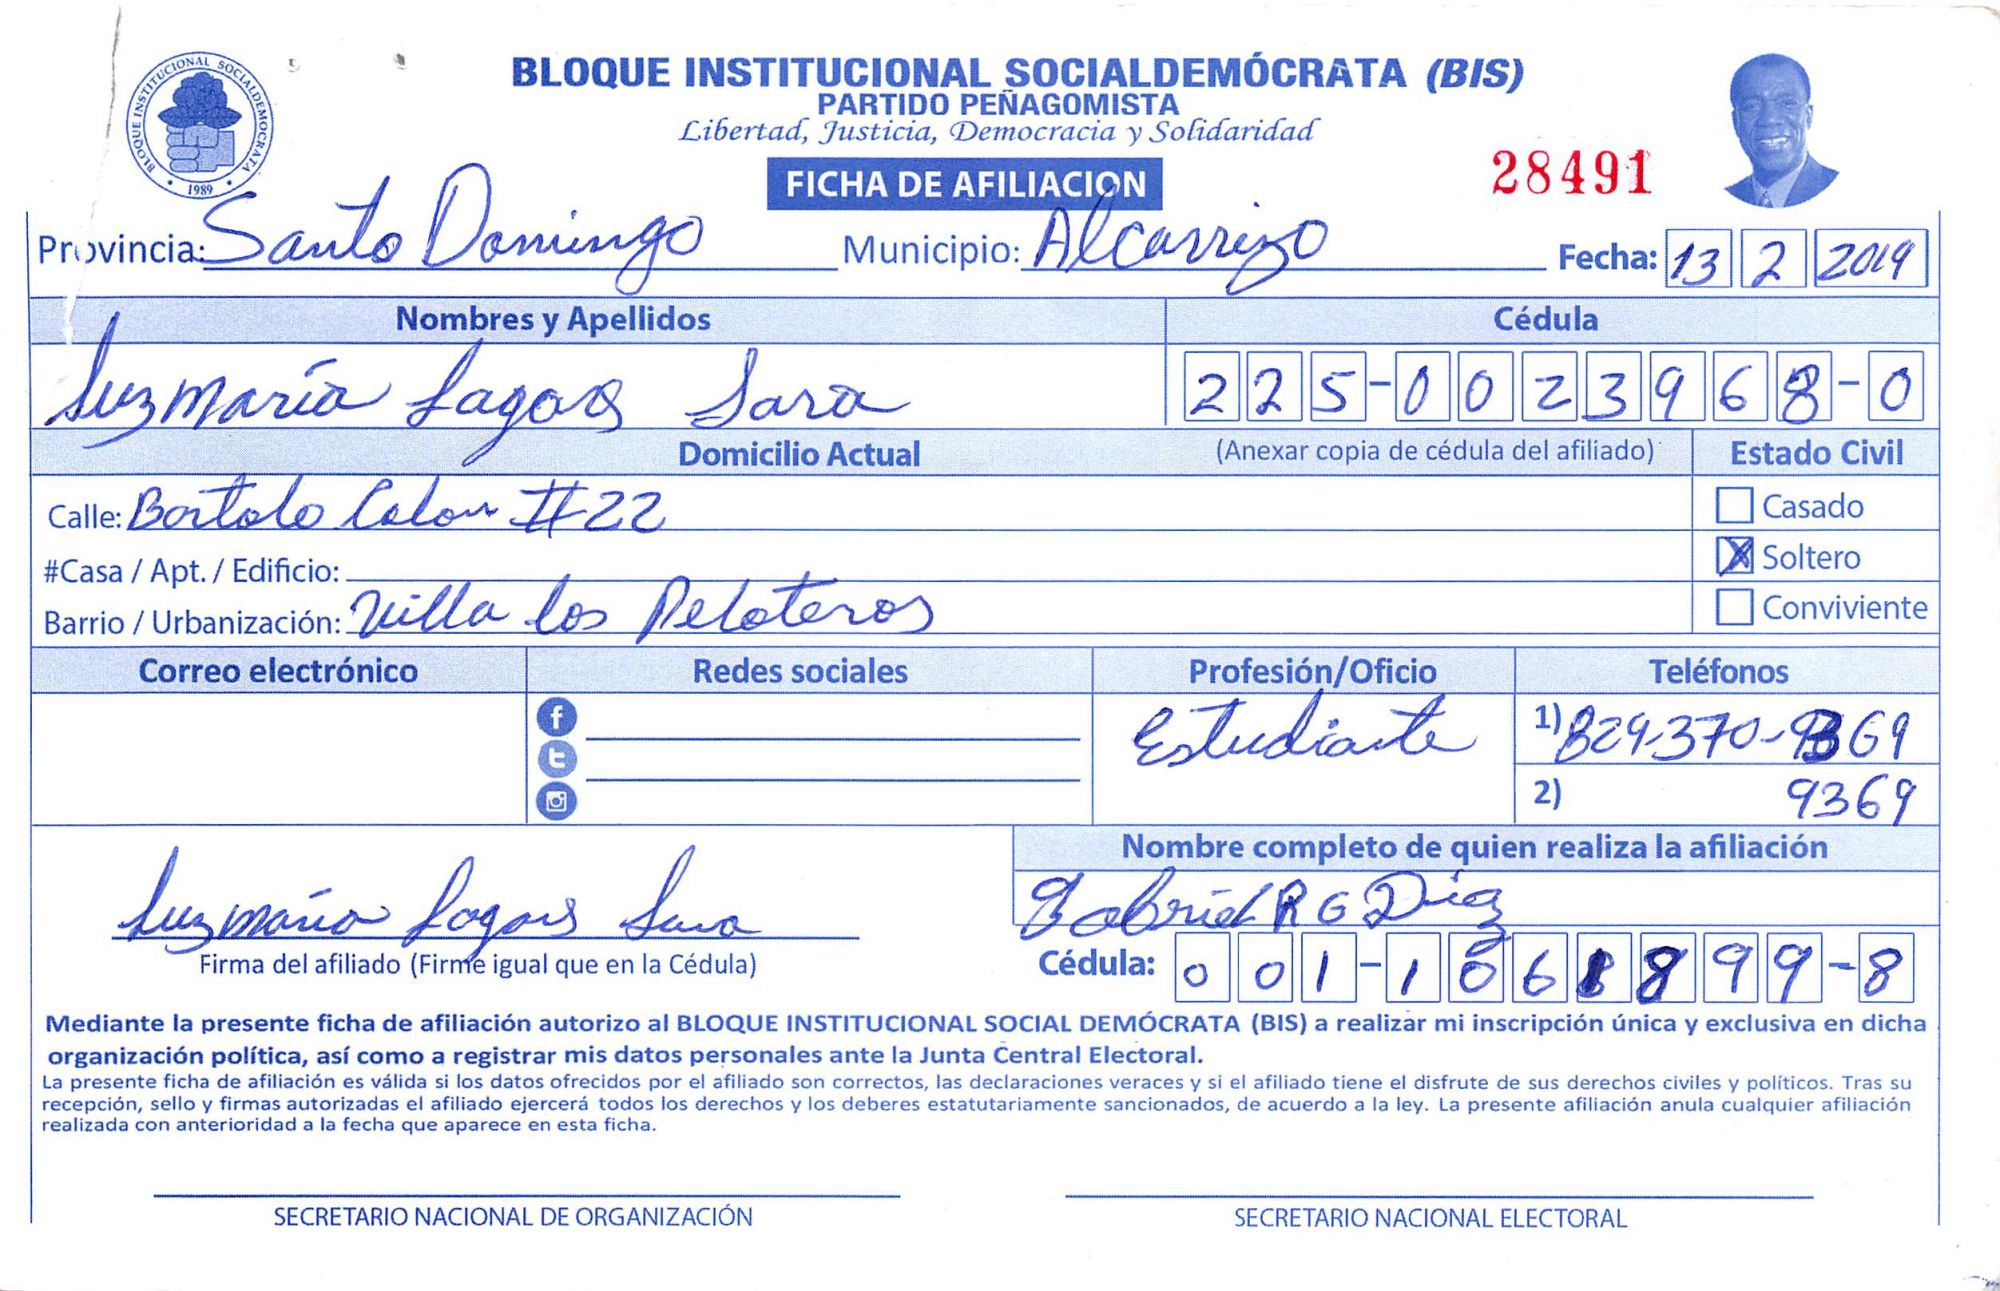 BLOQUE INSTITUCIONAL SOCIALDEMÓCRATA
1989
BLOQUE INSTITUCIONAL SOCIALDEMÓCRATA (BIS)
PARTIDO PEÑAGOMISTA
Libertad, Justicia, Democracia y Solidaridad
FICHA DE AFILIACION
28491
Provincia: Santo Domingo Municipio: Alcarrizo Fecha: 13 2 2019
Nombres y Apellidos Cédula
Luz María Lagos Sara 225-0023968-0
Domicilio Actual (Anexar copia de cédula del afiliado) Estado Civil
Calle: Bartolo Colon #22 Casado
#Casa / Apt. / Edificio: Soltero
Barrio / Urbanización: Villa los Peloteros Conviviente
Correo electrónico Redes sociales Profesión/Oficio Teléfonos
Estudiante 1) 829-370-9369
2) 9369
Nombre completo de quien realiza la afiliación
Luz María Lagos Sara Gabriel R G Diaz
Firma del afiliado (Firme igual que en la Cédula) Cédula: 001-1061899-8
Mediante la presente ficha de afiliación autorizo al BLOQUE INSTITUCIONAL SOCIAL DEMÓCRATA (BIS) a realizar mi inscripción única y exclusiva en dicha
organización política, así como a registrar mis datos personales ante la Junta Central Electoral.
La presente ficha de afiliación es válida si los datos ofrecidos por el afiliado son correctos, las declaraciones veraces y si el afiliado tiene el disfrute de sus derechos civiles y políticos. Tras su
recepción, sello y firmas autorizadas el afiliado ejercerá todos los derechos y los deberes estatutariamente sancionados, de acuerdo a la ley. La presente afiliación anula cualquier afiliación
realizada con anterioridad a la fecha que aparece en esta ficha.
SECRETARIO NACIONAL DE ORGANIZACIÓN SECRETARIO NACIONAL ELECTORAL